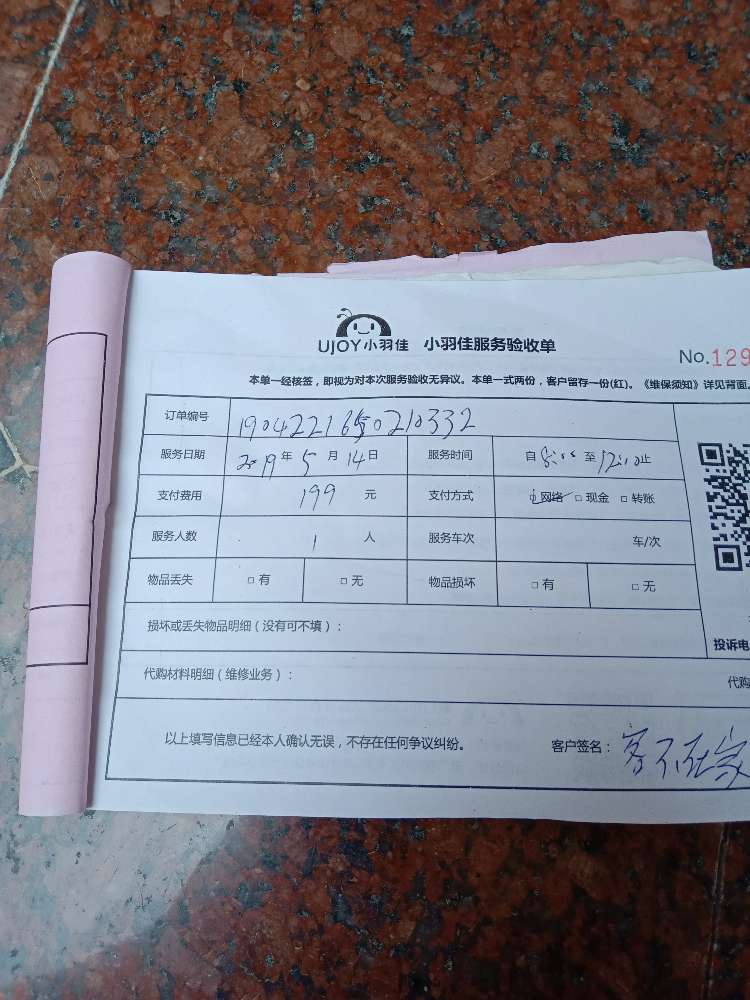 UJOY小羽佳 小羽佳服务验收单
No.129
本单一经核签，即视为对本次服务验收无异议。本单一式两份，客户留存一份(红)。《维保须知》详见背面。
订单编号 1904221650210332
服务日期 2019年5月14日 服务时间 自8:00至12:00止
支付费用 199元 支付方式 ☑网络 □现金 □转账
服务人数 1人 服务车次 车/次
物品丢失 □有 □无 物品损坏 □有 □无
损坏或丢失物品明细（没有可不填）：
投诉电
代购材料明细（维修业务）： 代购
以上填写信息已经本人确认无误，不存在任何争议纠纷。 客户签名：客不在家